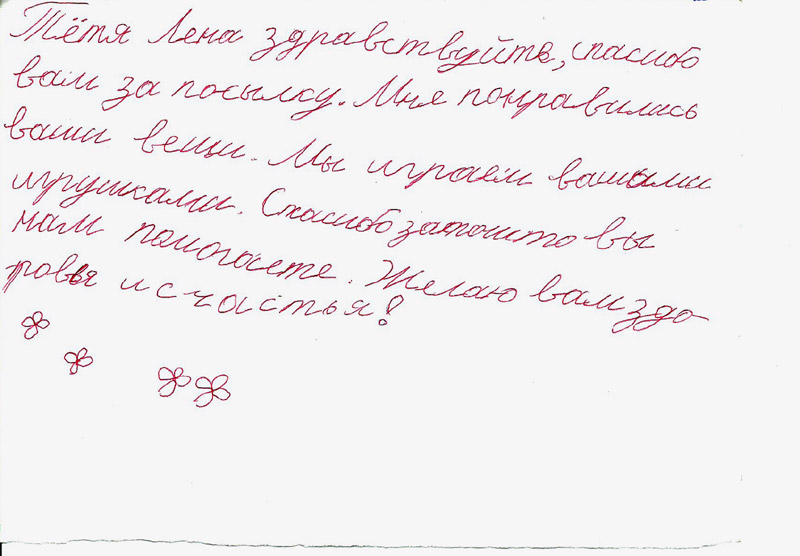 Тётя Лена здравствуйте, спасибо
вам за посылку. Мне понравились
ваши вещи. Мы играем вашими
игрушками. Спасибо зато што вы
нам помогаете. Желаю вам здо-
ровья и счастья!